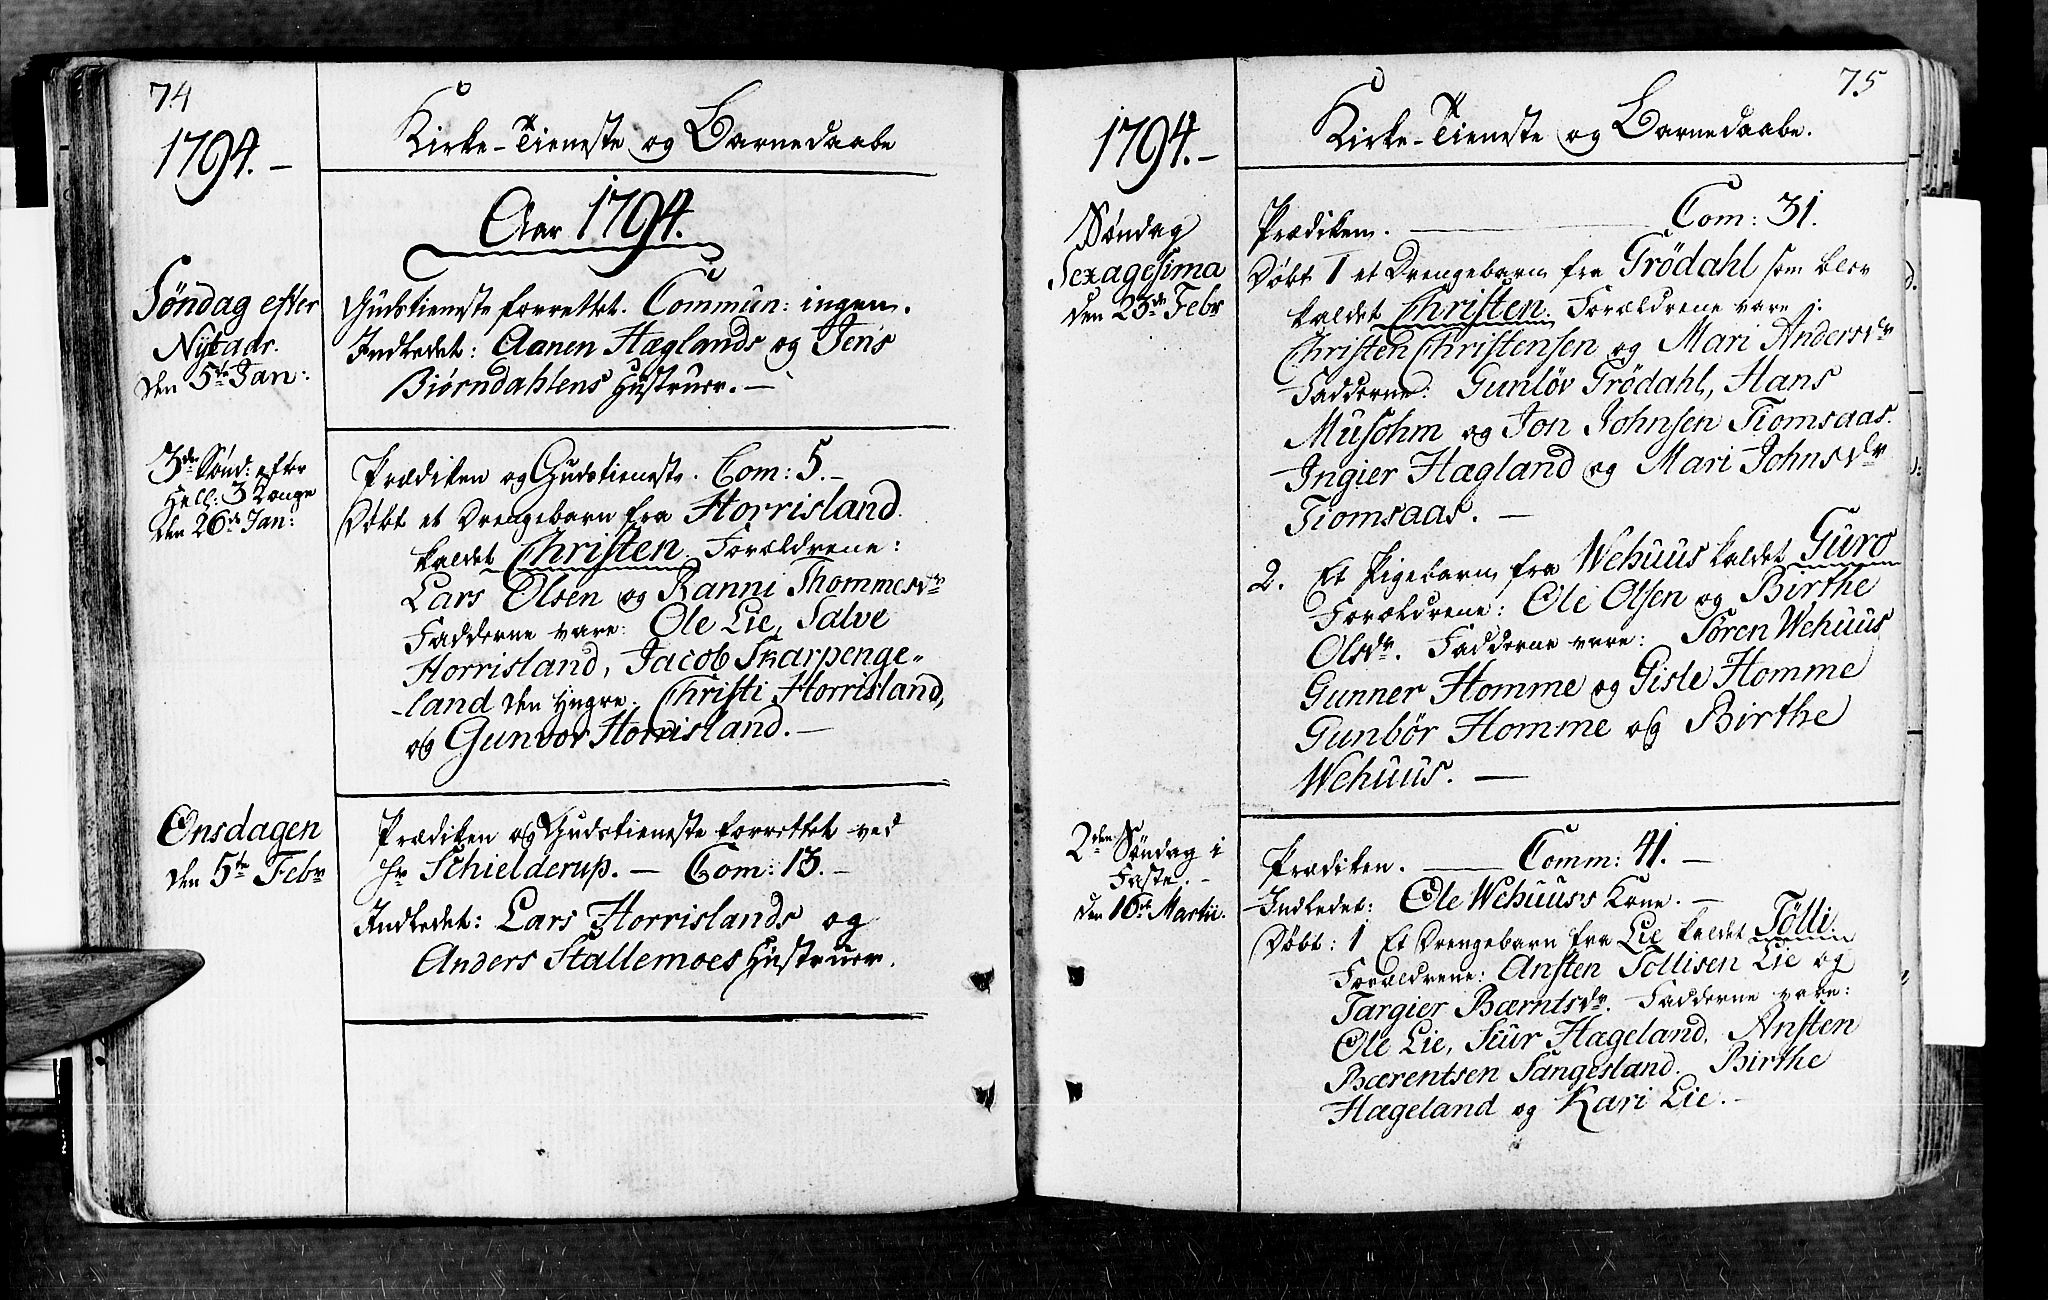 74
1794.
Kirke-Tieneste og Barnedaabe
Aar 1794.
Søndag efter
Nytaar.
den 5te Jan:
Gudstieneste forrettet. Commun: ingen.
Indledet: Aanen Hæglands og Jens
Biørndahlens Hustruer.
3de Sønd: efter
Hell: 3 Konge
den 26de Jan:
Prædiken og Gudstieneste. Com: 5.
Døbt et Drengebarn fra Horrisland.
kaldet Christen. Forældrene:
Lars Olsen og Ranni Thommesdr
Fadderne vare: Ole Lie, Salve
Horrisland, Jacob Skarpenge-
land den Yngre. Christi Horrisland,
og Gunvor Horrisland.
Onsdagen
den 5te Febr
Prædiken og Gudstieneste forrettet ved
Hr Schielderup. — Com: 13.
Indledet: Lars Horrislands og
Anders Stallemoes Hustruer.
75
1794.
Kirke-Tieneste og Barnedaabe.
Søndag
Sexagesima
den 23de Febr
Prædiken. Com: 31.
Døbt 1 et Drengebarn fra Trödahl som blev
kaldet Christen. Forældrene vare
Christen Christensen og Mari Andersdr
Fadderne: Gunlöv Trödahl, Hans
Musohm og Jon Johnsen Tiomsaas.
Ingier Hagland og Mari Johnsdr
Tiomsaas.
2. Et Pigebarn fra Wehuus kaldet Guro
Forældrene: Ole Olsen og Birthe
Olsdr. Fadderne vare: Sören Wehuus
Gunner Homme og Gisle Homme
Gunbör Homme og Birthe
Wehuus.
2den Søndag i
Faste.
den 16de Martii.
Prædiken. Comm: 41.
Indledet: Ole Wehuuss Kone.
Døbt: 1 Et Drengebarn fra Lie kaldet Tölli.
Forældrene: Ansten Tollisen Lie og
Targier Bærntsdr. Fadderne vare:
Ole Lie, Siur Hageland, Ansten
Bærentsen Sangesland. Birthe
Hageland og Kari Lie.